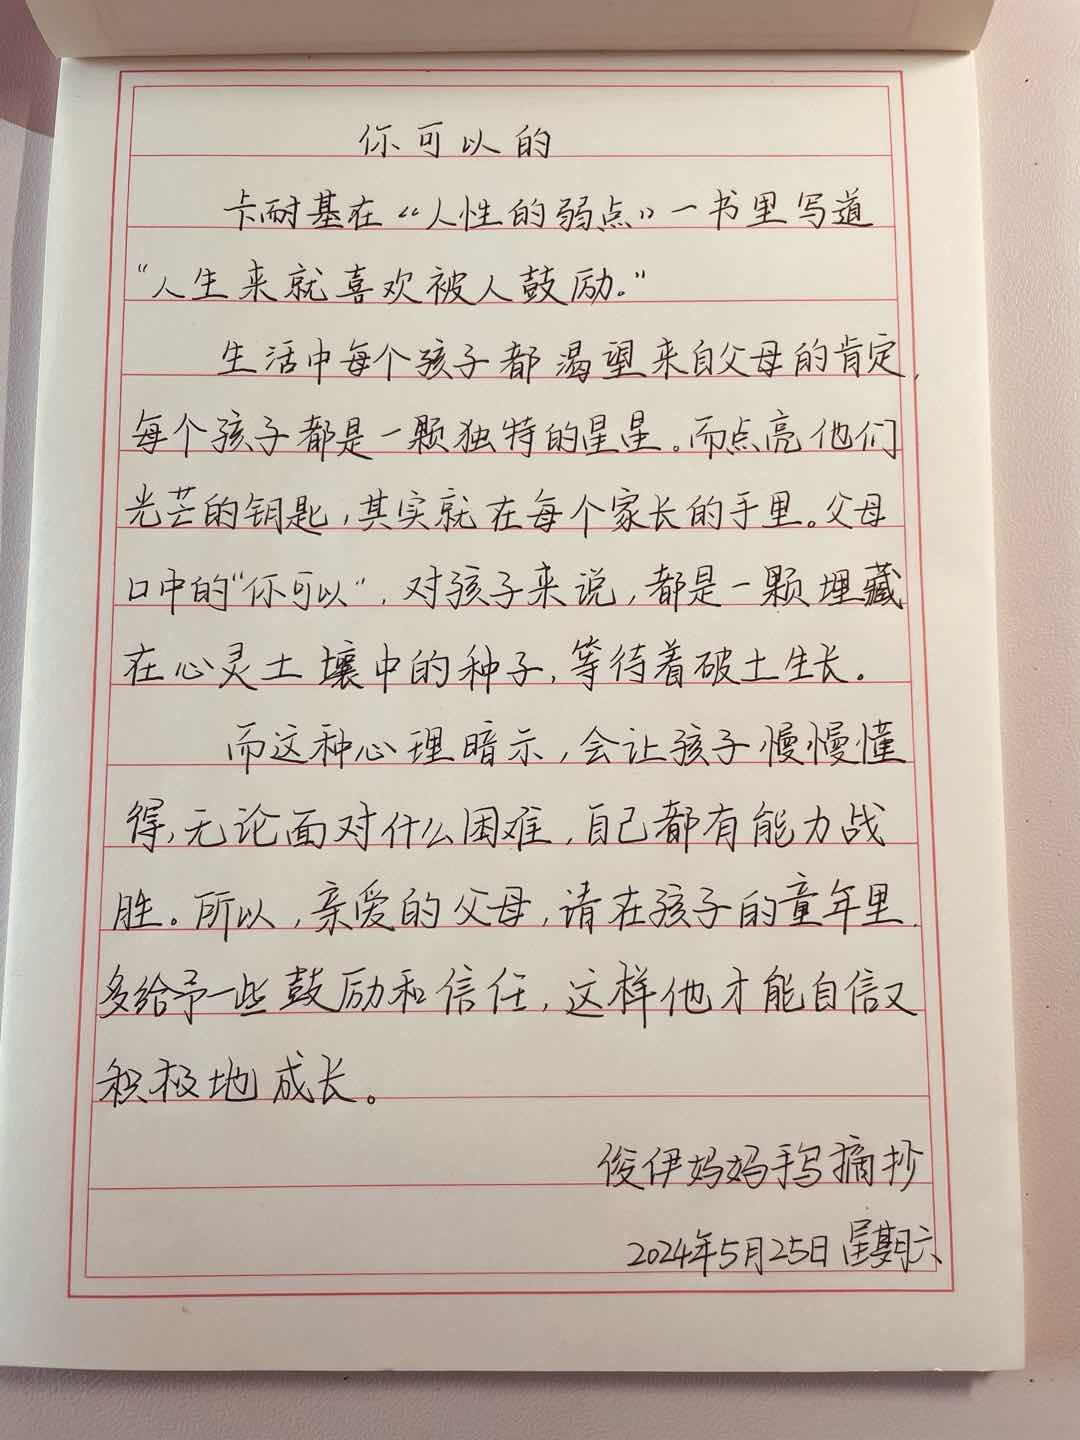 你可以的
卡耐基在《人性的弱点》一书里写道
"人生来就喜欢被人鼓励."
生活中每个孩子都渴望来自父母的肯定,
每个孩子都是一颗独特的星星。而点亮他们
光芒的钥匙,其实就在每个家长的手里。父母
口中的"你可以",对孩子来说,都是一颗埋藏
在心灵土壤中的种子,等待着破土生长。
而这种心理暗示,会让孩子慢慢懂
得,无论面对什么困难,自己都有能力战
胜。所以,亲爱的父母,请在孩子的童年里,
多给予一些鼓励和信任,这样他才能自信又
积极地成长。
俊伊妈妈手写摘抄
2024年5月25日 星期六